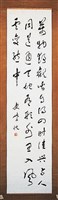 萬物靜觀皆自得四時佳興与人
同道通天地有形外思入風
雲變態中